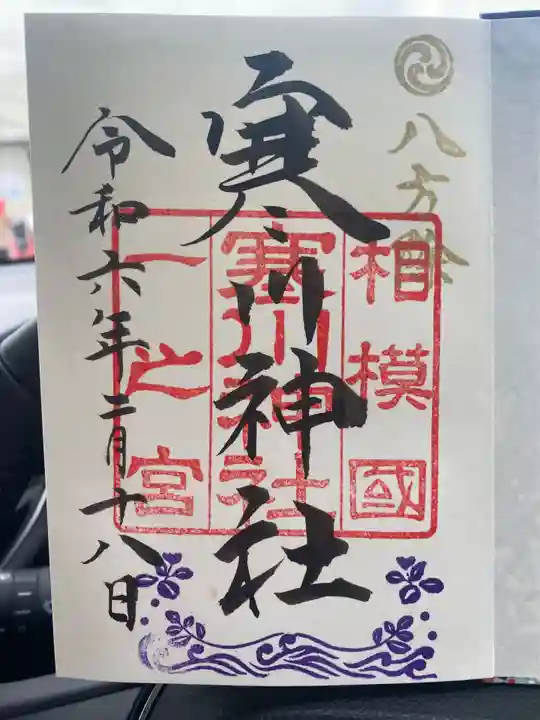 八方除
相模國
寒川神社
寒川神社
一之宮
令和六年二月十八日